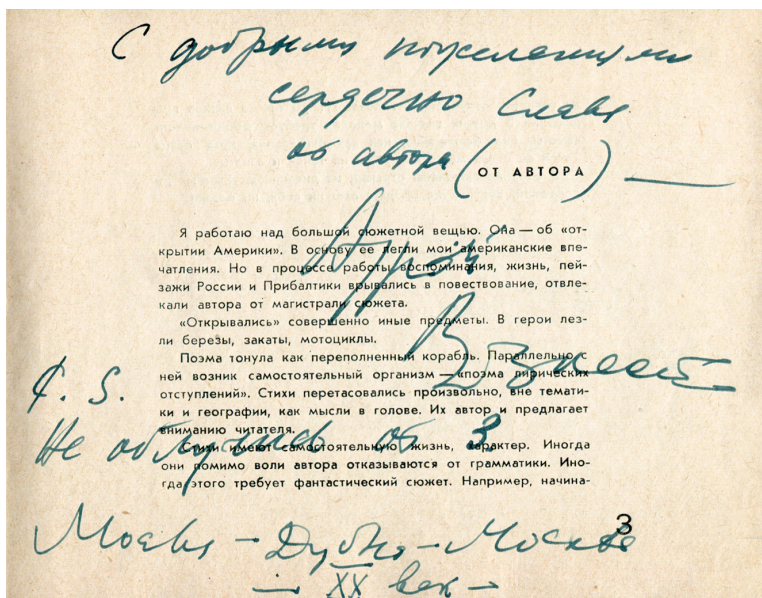 С добрыми пожеланиями
сердечно Славе
от автора (ОТ АВТОРА)
Я работаю над большой сюжетной вещью. Она — об «от-
крытии Америки». В основу ее легли мои американские впе-
чатления. Но в процессе работы воспоминания, жизнь, пей-
зажи России и Прибалтики врывались в повествование, отвле-
кали автора от магистрали сюжета.
«Открывались» совершенно иные предметы. В герои лез-
ли березы, закаты, мотоциклы.
Поэма тонула как переполненный корабль. Параллельно с
ней возник самостоятельный организм — «поэма лирических
отступлений». Стихи перетасовались произвольно, вне темати-
ки и географии, как мысли в голове. Их автор и предлагает
вниманию читателя.
Стихи имеют самостоятельную жизнь, характер. Иногда
они помимо воли автора отказываются от грамматики. Ино-
гда этого требует фантастический сюжет. Например, начина-
Андрей
Вознесе
P. S.
Не облучись от
3
Москва — Дубна — Москва
— XX век —